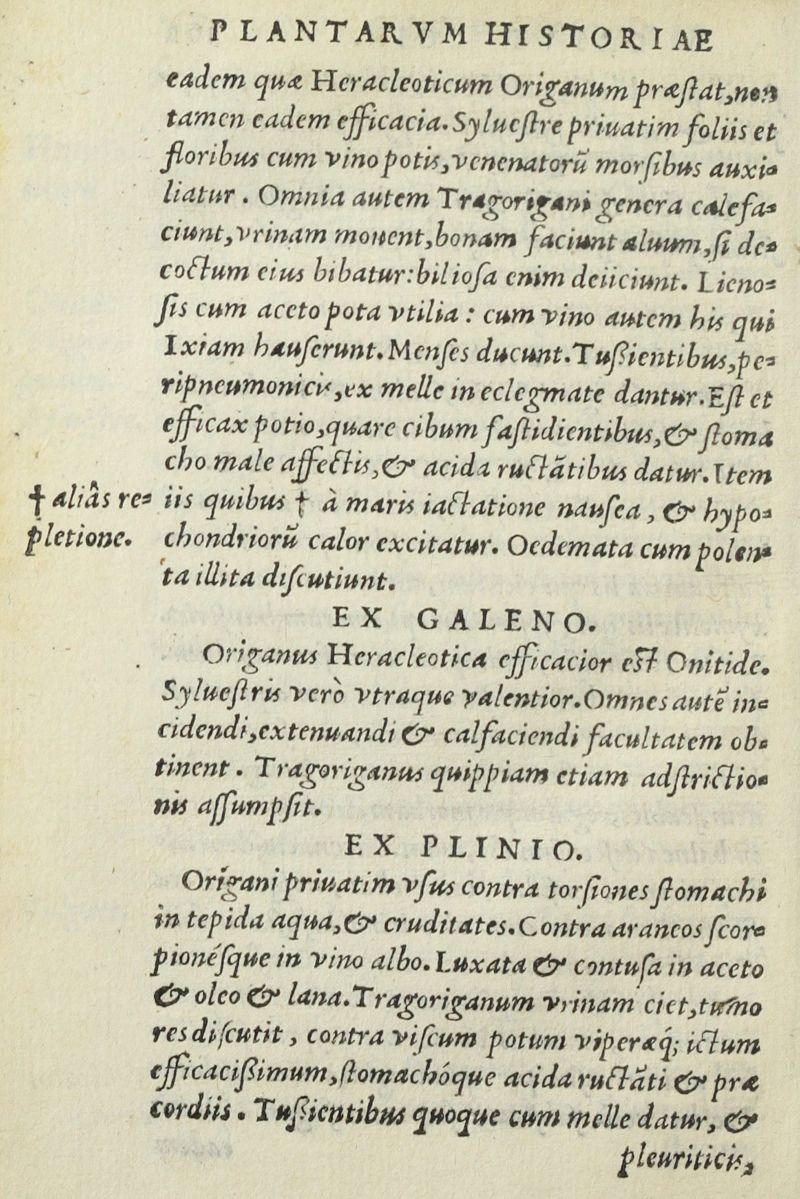 PLANTARVM HISTORIAE
eadem quæ Heracleoticum Origanum præſtat, non
tamen eadem efficacia. Sylueſtre priuatim foliis et
floribus cum vino potis, venenatorũ morſibus auxi-
liatur. Omnia autem Tragorigani genera calefa-
ciunt, vrinam mouent, bonam faciunt aluum, ſi de-
coctum eius bibatur: bilioſa enim deiiciunt. Lieno-
ſis cum aceto pota vtilia: cum vino autem his qui
Ixiam hauſerunt. Menſes ducunt. Tußientibus, pe-
ripneumonicis, ex melle in eclegmate dantur. Eſt et
efficax potio, quare cibum faſtidientibus, & ſtoma
cho male affectis, & acida ructãtibus datur. Item
† aliâs re- iis quibus † à maris iactatione nauſea, & hypo-
pletione. chondriorũ calor excitatur. Oedemata cum polen-
ta illita diſcutiunt.
EX GALENO.
Origanus Heracleotica efficacior eſt Onitide.
Sylueſtris verò vtraque valentior. Omnes autẽ in-
cidendi, extenuandi & calfaciendi facultatem ob-
tinent. Tragoriganus quippiam etiam adſtrictio-
nis aſſumpſit.
EX PLINIO.
Origani priuatim vſus contra torſiones ſtomachi
in tepida aqua, & cruditates. Contra araneos ſcor-
pionéſque in vino albo. Luxata & contuſa in aceto
& oleo & lana. Tragoriganum vrinam ciet, tumo
res diſcutit, contra viſcum potum viperæq́; ictum
efficacißimum, ſtomachóque acida ructãti & præ
cordiis. Tußientibus quoque cum melle datur, &
pleuriticis,